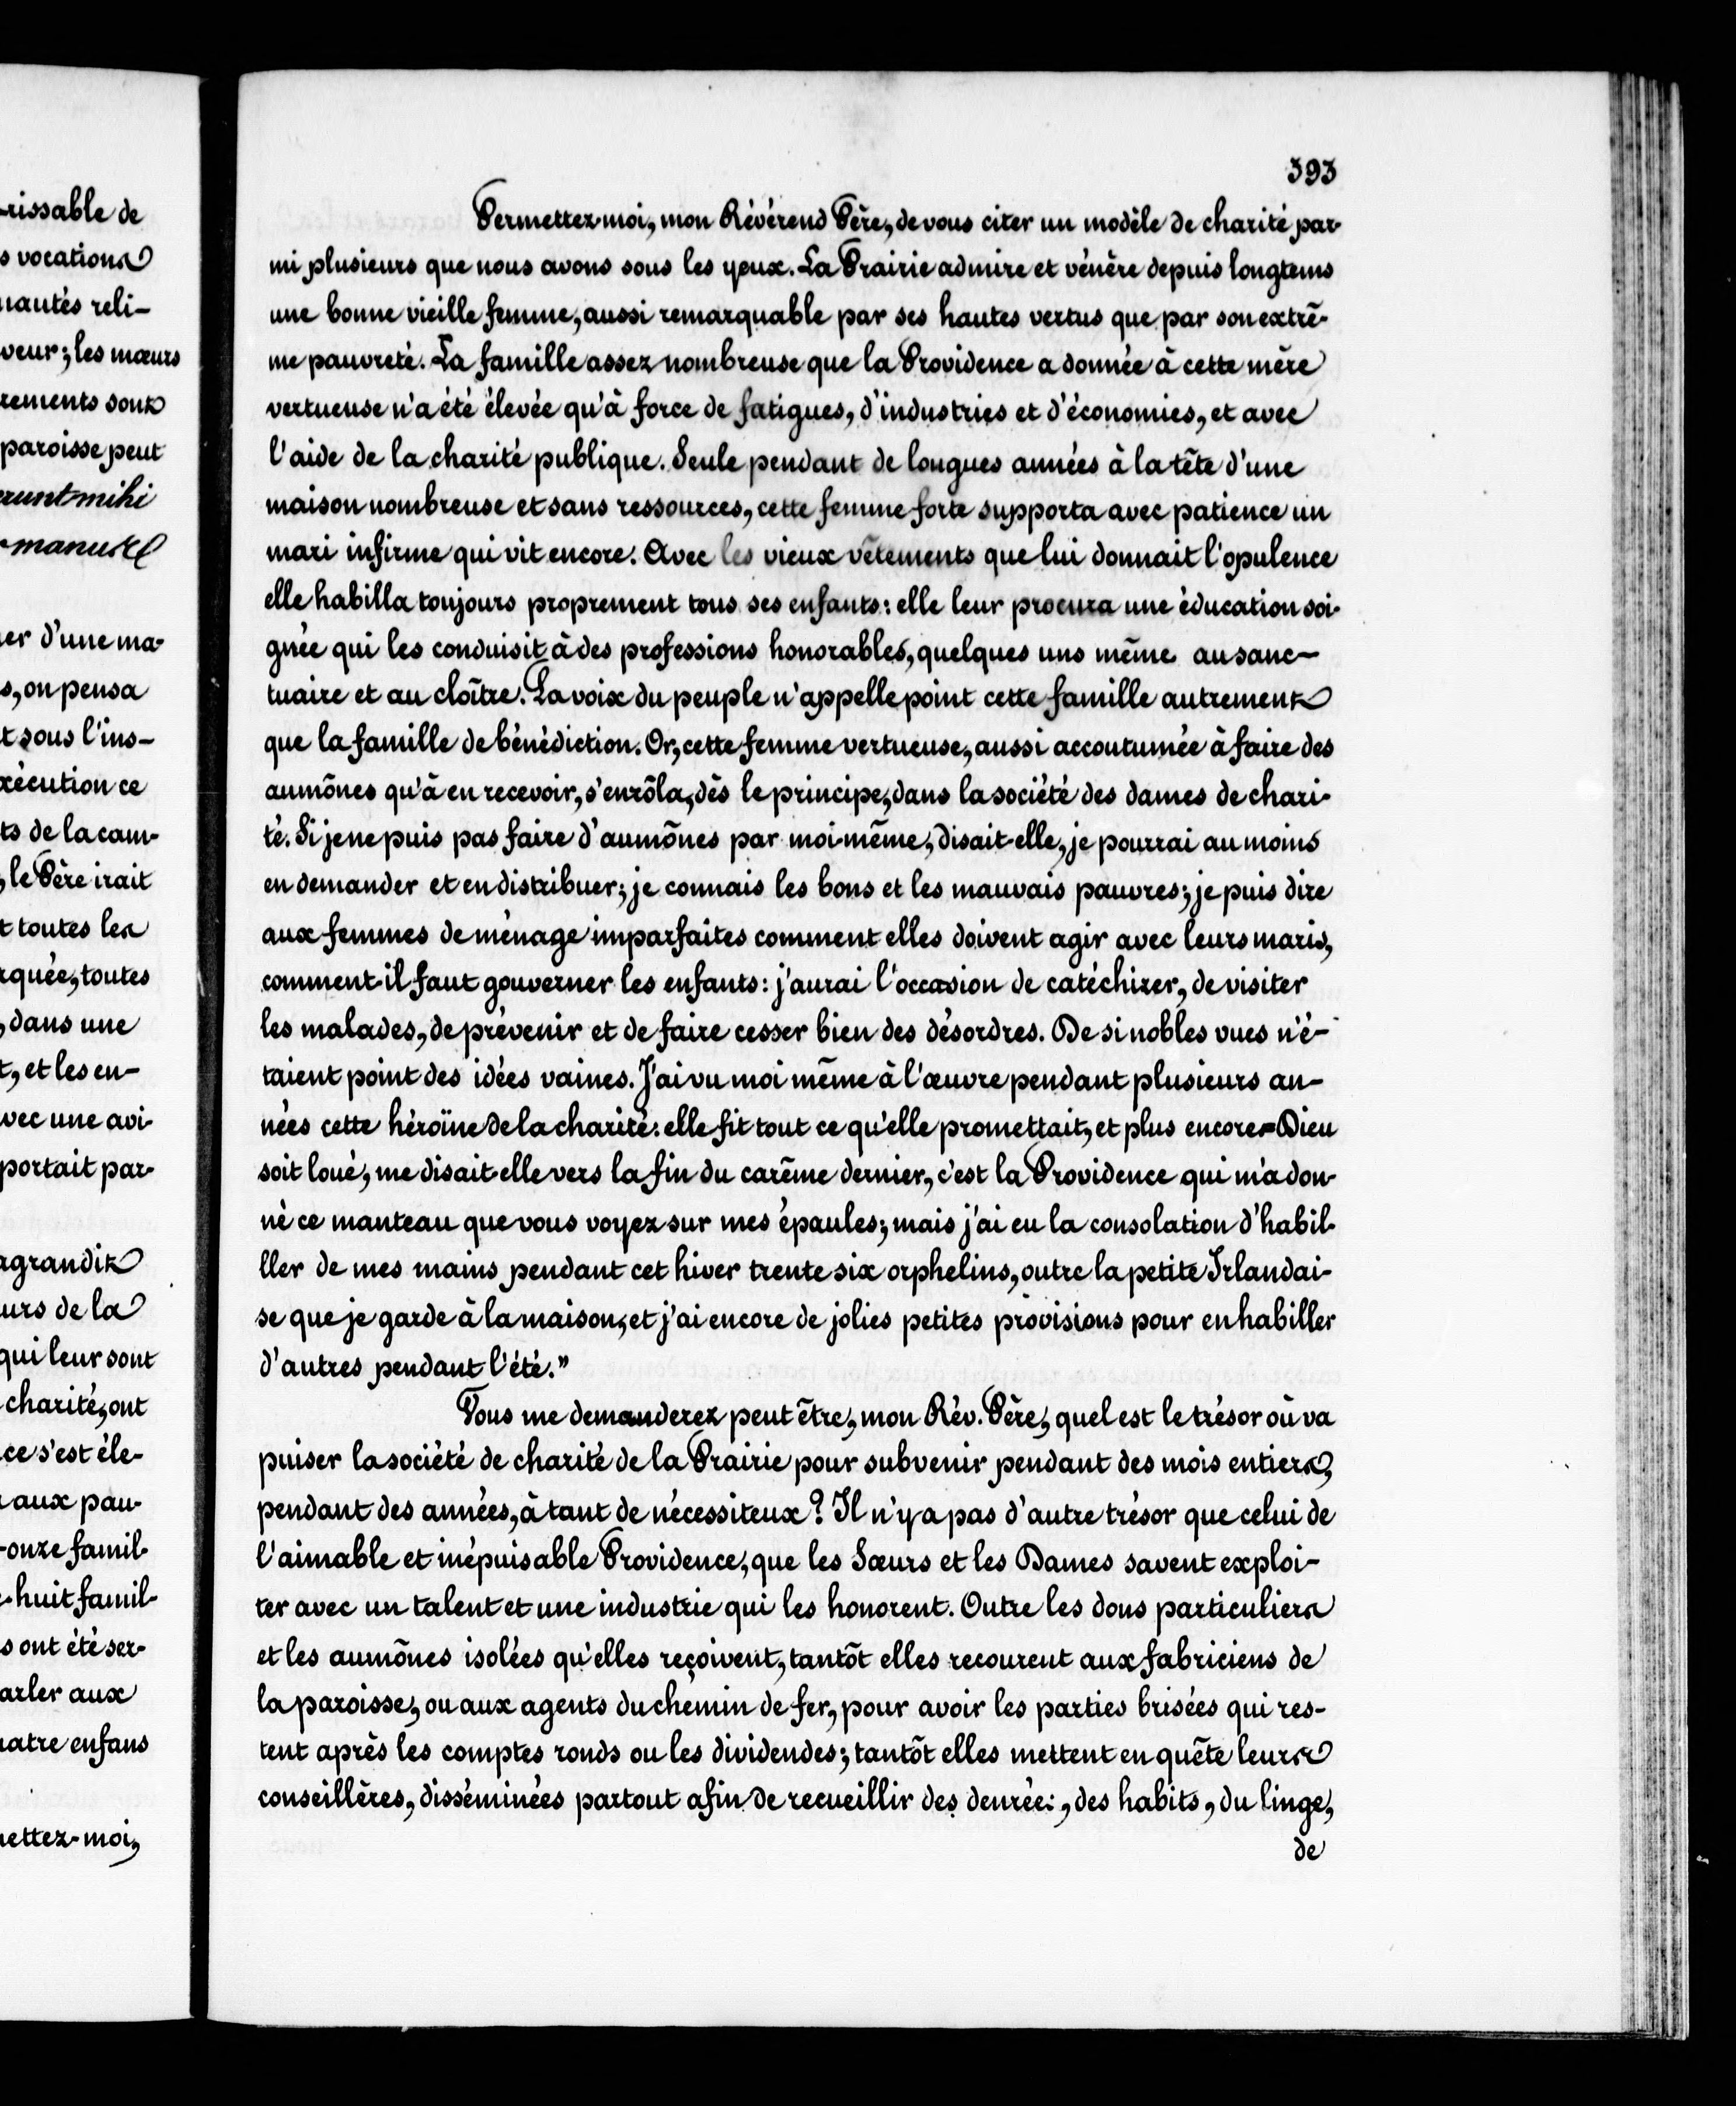 -rissable de
s vocations
nautés reli-
veur; les mœurs
rements sont
paroisse peut
erunt mihi
er d'une ma-
s, on pensa
t sous l'ins-
xécution ce
ts de la cam-
, le Père irait
t toutes les
rquée, toutes
, dans une
t, et les en-
vec une avi-
portait par-
agrandit
urs de la
qui leur sont
charité, ont
ce s'est éle-
aux pau-
-onze famil-
e-huit famil-
s ont été ser-
arler aux
uatre enfans
ettez-moi,
393
Permettez-moi, mon Révérend Père, de vous citer un modèle de charité par-
mi plusieurs que nous avons sous les yeux. La Prairie admire et vénère depuis longtems
une bonne vieille femme, aussi remarquable par ses hautes vertus que par son extrê-
me pauvreté. La famille assez nombreuse que la Providence a donnée à cette mère
vertueuse n'a été élevée qu'à force de fatigues, d'industries et d'économies, et avec
l'aide de la charité publique. Seule pendant de longues années à la tête d'une
maison nombreuse et sans ressources, cette femme forte supporta avec patience un
mari infirme qui vit encore. Avec les vieux vêtements que lui donnait l'opulence
elle habilla toujours proprement tous ses enfants: elle leur procura une éducation soi-
gnée qui les conduisit à des professions honorables, quelques uns même au sanc-
tuaire et au cloître. La voix du peuple n'appelle point cette famille autrement
que la famille de bénédiction. Or, cette femme vertueuse, aussi accoutumée à faire des
aumônes qu'à en recevoir, s'enrôla, dès le principe, dans la société des dames de chari-
té. Si je ne puis pas faire d'aumônes par moi-même, disait-elle, je pourrai au moins
en demander et en distribuer; je connais les bons et les mauvais pauvres; je puis dire
aux femmes de ménage imparfaites comment elles doivent agir avec leurs maris,
comment il faut gouverner les enfants: j'aurai l'occasion de catéchizer, de visiter
les malades, de prévenir et de faire cesser bien des désordres. De si nobles vues n'é-
taient point des idées vaines. J'ai vu moi même à l'œuvre pendant plusieurs an-
nées cette héroïne de la charité: elle fit tout ce qu'elle promettait, et plus encore = Dieu
soit loué, me disait-elle vers la fin du carême dernier, c'est la Providence qui m'a don-
né ce manteau que vous voyez sur mes épaules; mais j'ai eu la consolation d'habil-
ller de mes mains pendant cet hiver trente six orphelins, outre la petite Irlandai-
se que je garde à la maison, et j'ai encore de jolies petites provisions pour en habiller
d'autres pendant l'été."
Vous me demanderez peut être, mon Rév. Père, quel est le trésor où va
puiser la société de charité de la Prairie pour subvenir pendant des mois entiers,
pendant des années, à tant de nécessiteux? Il n'y a pas d'autre trésor que celui de
l'aimable et inépuisable Providence, que les Sœurs et les Dames savent exploi-
ter avec un talent et une industrie qui les honorent. Outre les dons particuliers
et les aumônes isolées qu'elles reçoivent, tantôt elles recourent aux fabriciens de
la paroisse, ou aux agents du chemin de fer, pour avoir les parties brisées qui res-
tent après les comptes ronds ou les dividendes; tantôt elles mettent en quête leurs
conseillères, disséminées partout afin de recueillir des denrées, des habits, du linge,
de